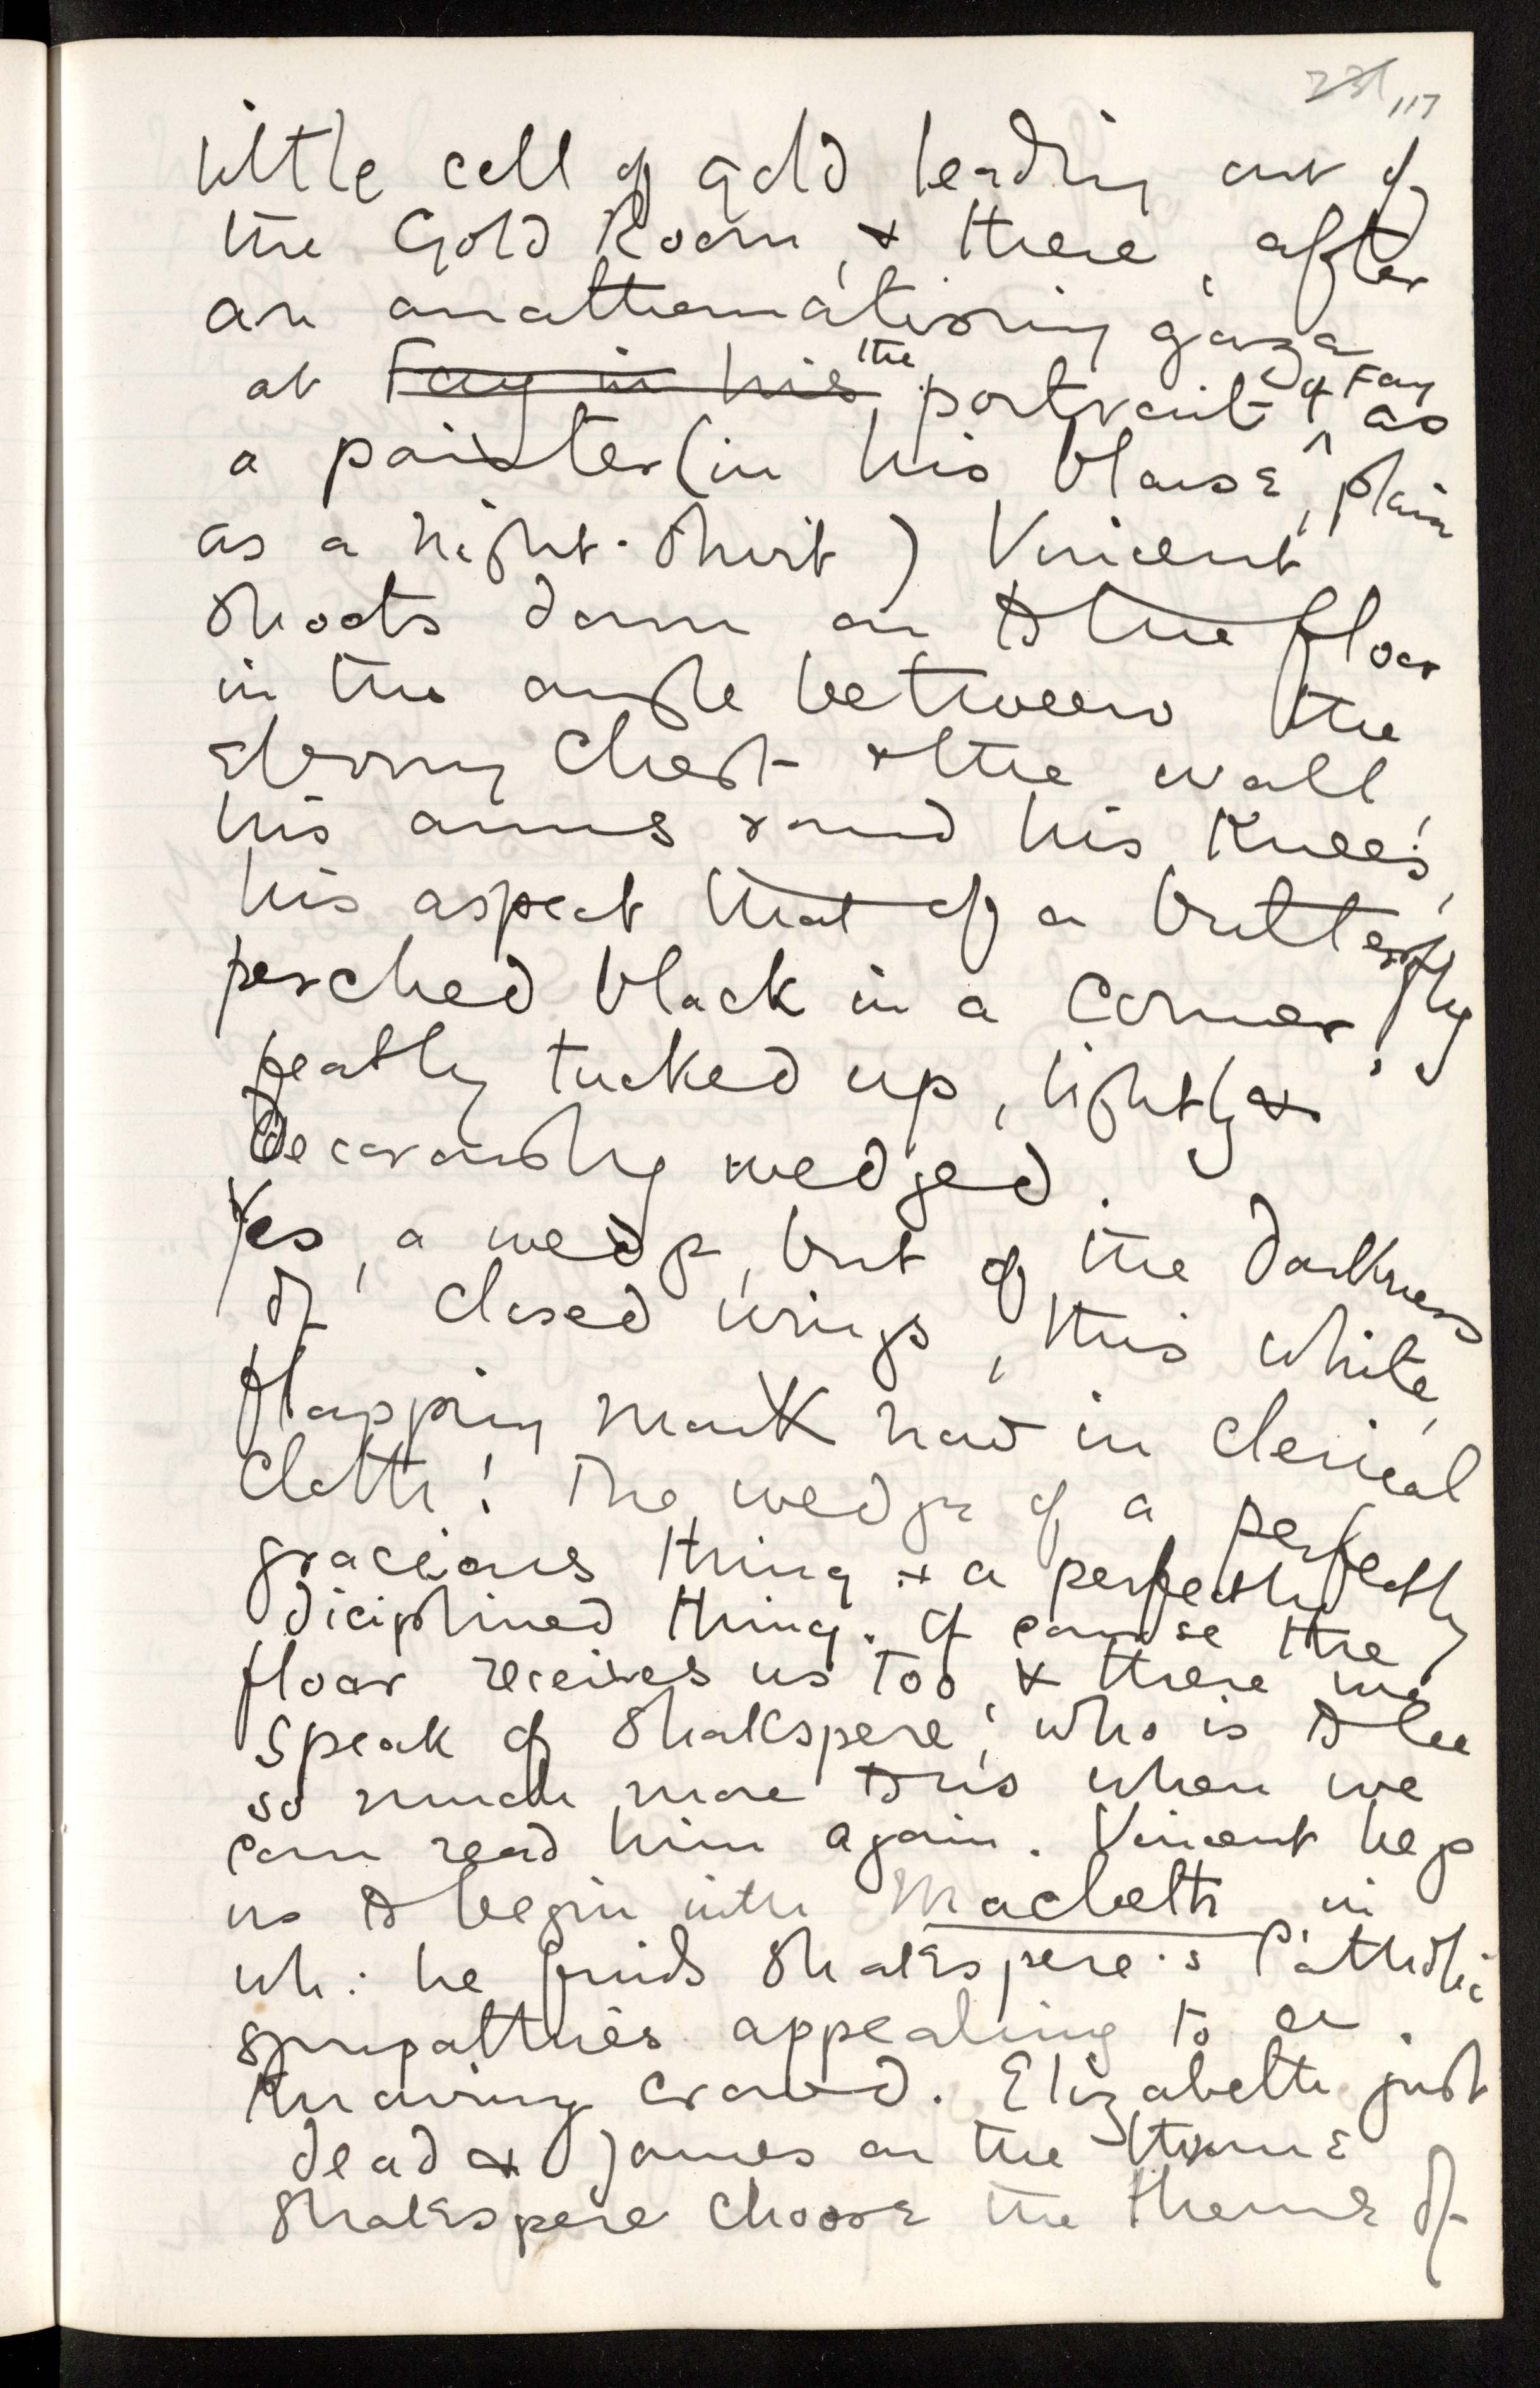 231 117
little cell of gold leading out of
the Gold Room, & there, after
an anathematising gaze
at Fay in his the portrait of Fay as
a painter (in his blouse, plain
as a night-shirt) Vincent
shoots down on to the floor
in the angle between the
ebony chest & the wall,
his arms round his knees,
his aspect that of a butterfly
perched black in a corner,
featly tucked up, lightly &
decorously wedged.
Yes, a wedge, but of the darkness
of closed wings, this white,
flapping monk now in clerical
cloth! The wedge of a perfectly
gracious thing & a perfectly
diciplined thing. Of course the
floor receives us too, & there we
speak of Shakspere, who is to be
so much more to us when we
can read him again. Vincent begs
us to begin with Macbeth in
wh: he finds Shakespere's Catholic
sympathies appealing to a
knowing crowd. Elizabeth just
dead & James on the throne
Shakespere chooses the theme of